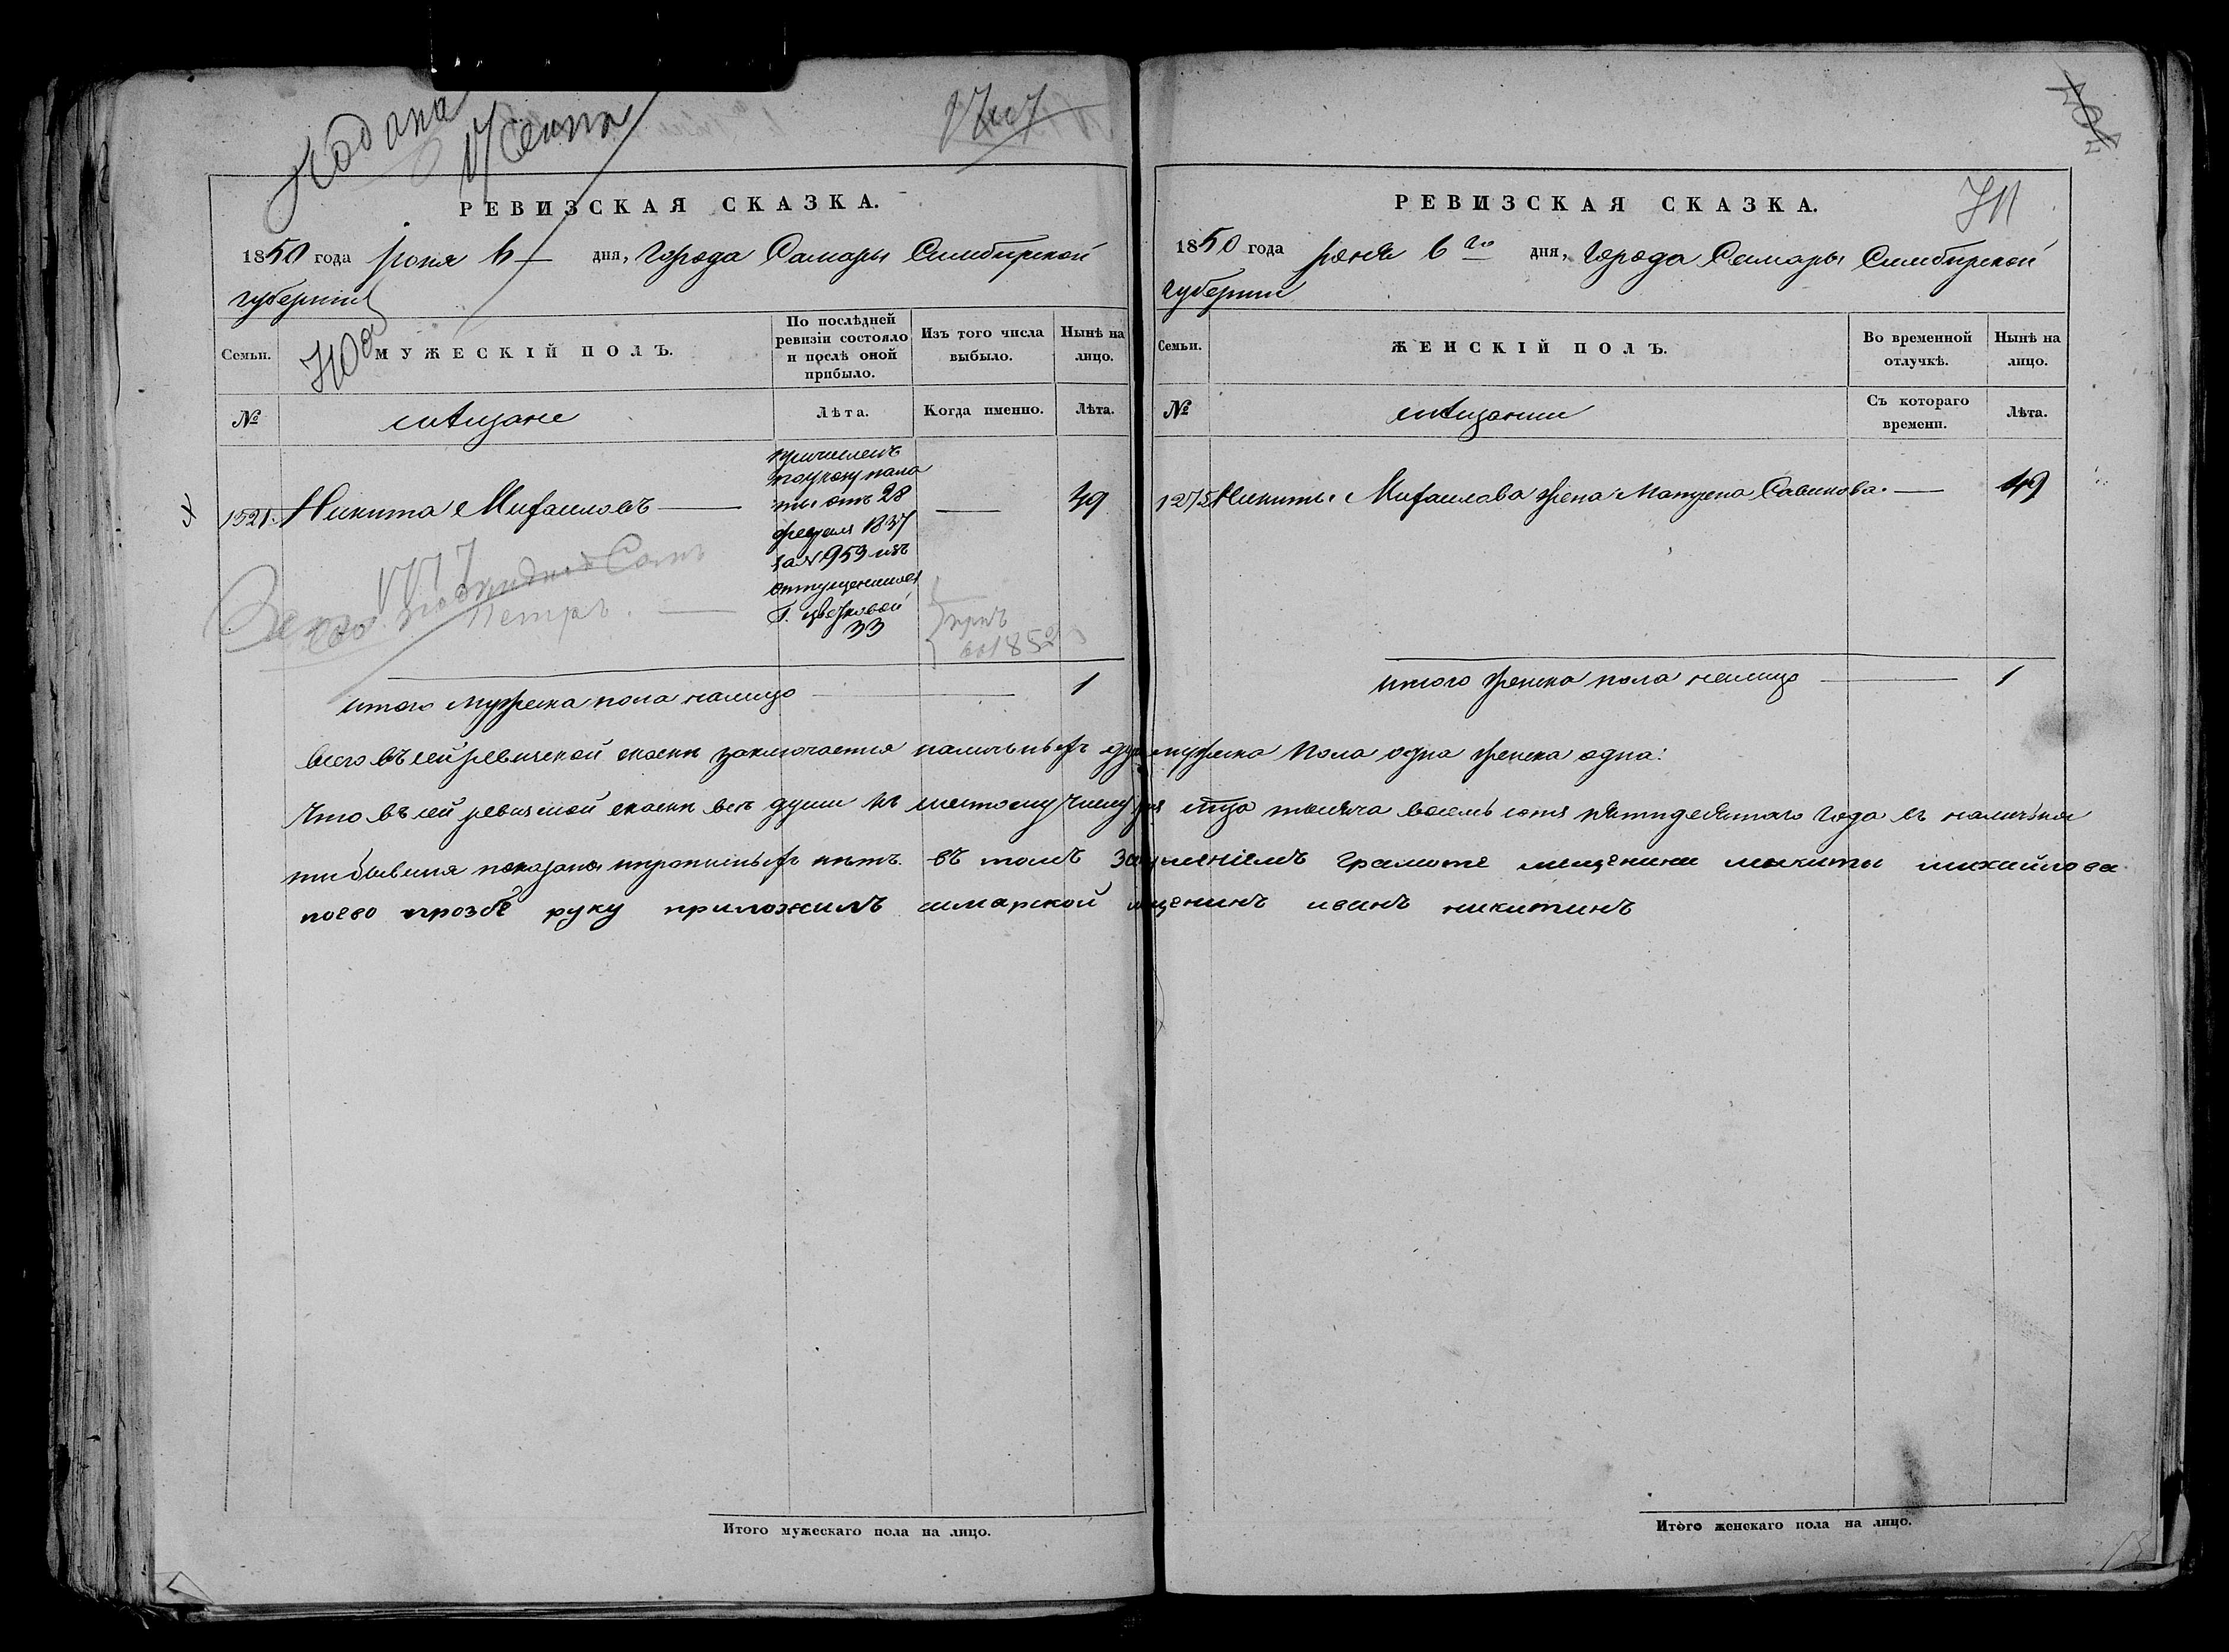 Подана
7 Сент
РЕВИЗСКАЯ СКАЗКА.
1850 года июня 6 дня, Города Самары Симбирской
губернии
Семьи.
МУЖЕСКІЙ ПОЛЪ.
По послѣдней ревизіи состояло и послѣ оной прибыло.
Изъ того числа выбыло.
Нынѣ на лицо.
№
мѣщане
Лѣта.
Когда именно.
Лѣта.
причисленъ
по указу пала
ты отъ 28
февраля 1837
за № 953 изъ
отпущенниковъ
Г.
33
1521. Никита Михаиловъ — — 49
Петръ.
1852
итого мужеска пола налицо 1
РЕВИЗСКАЯ СКАЗКА.
711
1850 года июня 6го дня, Города Самары Симбирской
губернии
Семьи.
ЖЕНСКІЙ ПОЛЪ.
Во временной отлучкѣ.
Нынѣ на лицо.
№
мѣщанки
Съ котораго времени.
Лѣта.
Никиты Михаилова жена Матрена Савинова. — 49
итого женска пола налицо 1
всего въ сей ревизской скаски заключается наличныхъ душъ мужеска пола одна женска одна:
Что въ сей ревизской скаски все души къ шестому числу июня тысяча восемь сотъ пятидесятаго года въ наличьности бывшия показаны и прописныхъ нѣтъ. въ томъ грамоте мещенина никиты михайлова
поево прозбе руку приложилъ самарской мещенинъ иванъ никитинъ
Итого мужескаго пола на лицо.
Итого женскаго пола на лицо.